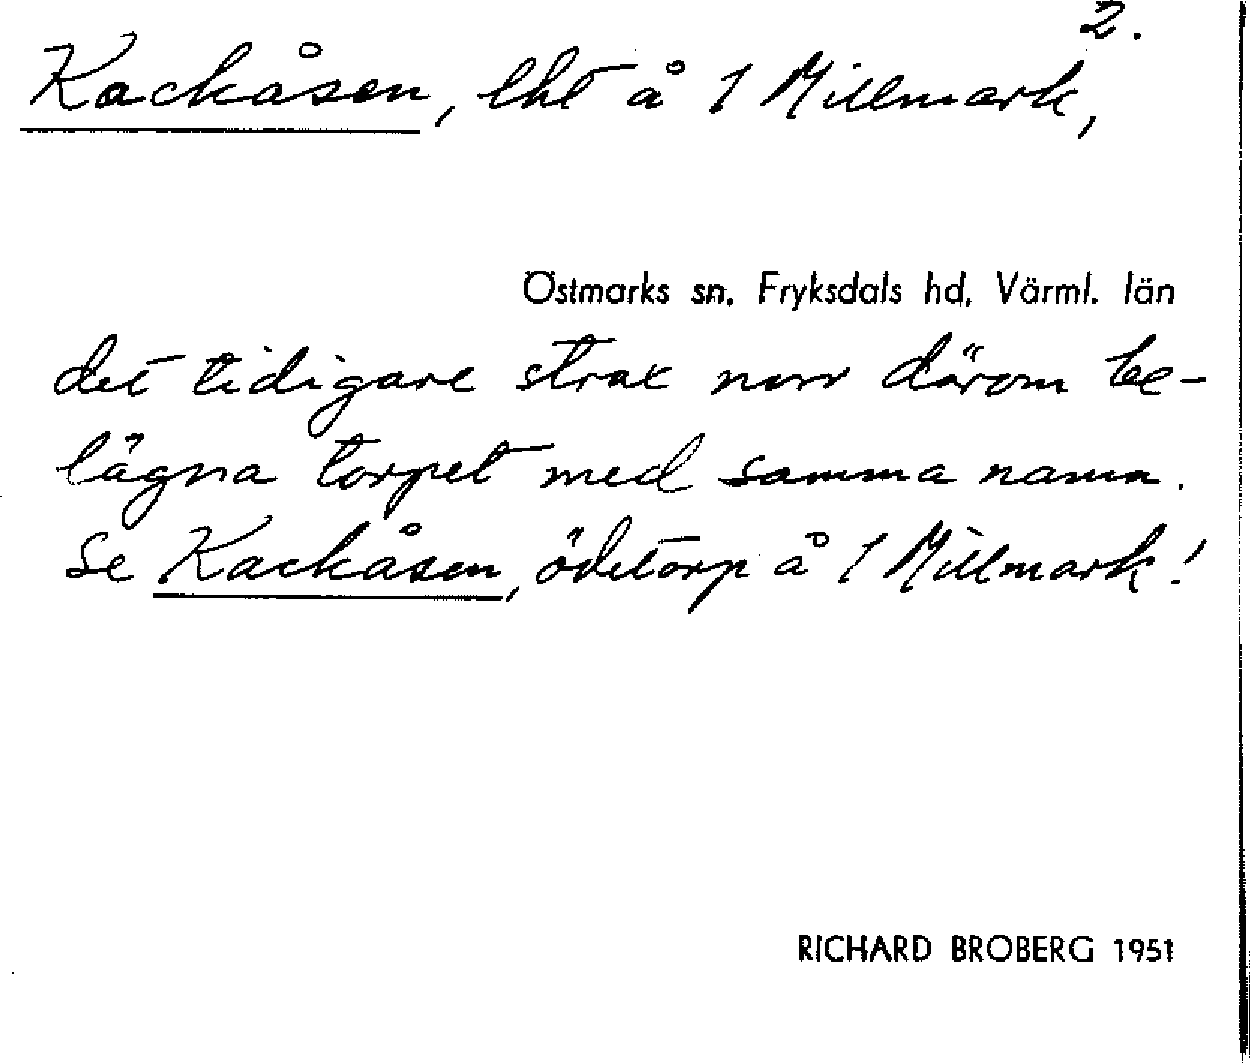 2.
Kackåsen, lht å 1 Millmark,
Östmarks sn. Fryksdals hd, Värml. län
det tidigare strax norr därom be-
lägna torpet med samma namn.
Se Kackåsen, ödetorp å 1 Millmark!
RICHARD BROBERG 1951